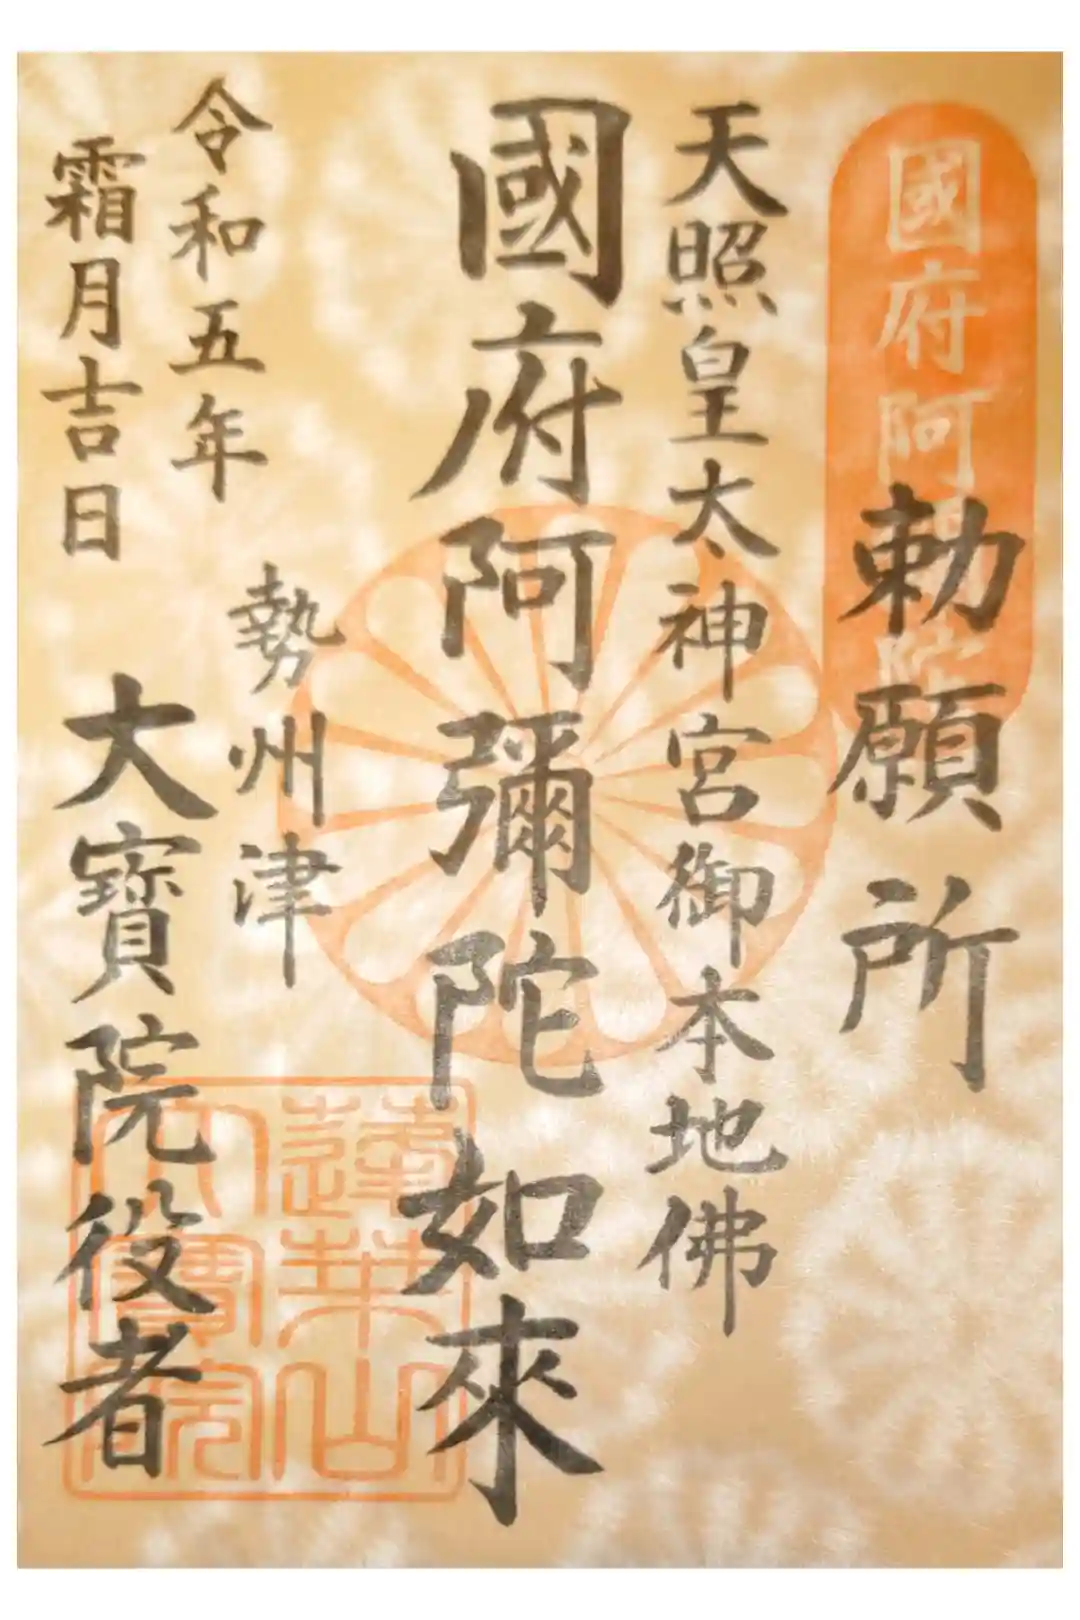 國府阿
勅願所
天照皇太神宮御本地佛
國府阿彌陀如來
勢州津
令和五年
霜月吉日
大寶院役者
蓮華山
大寶院